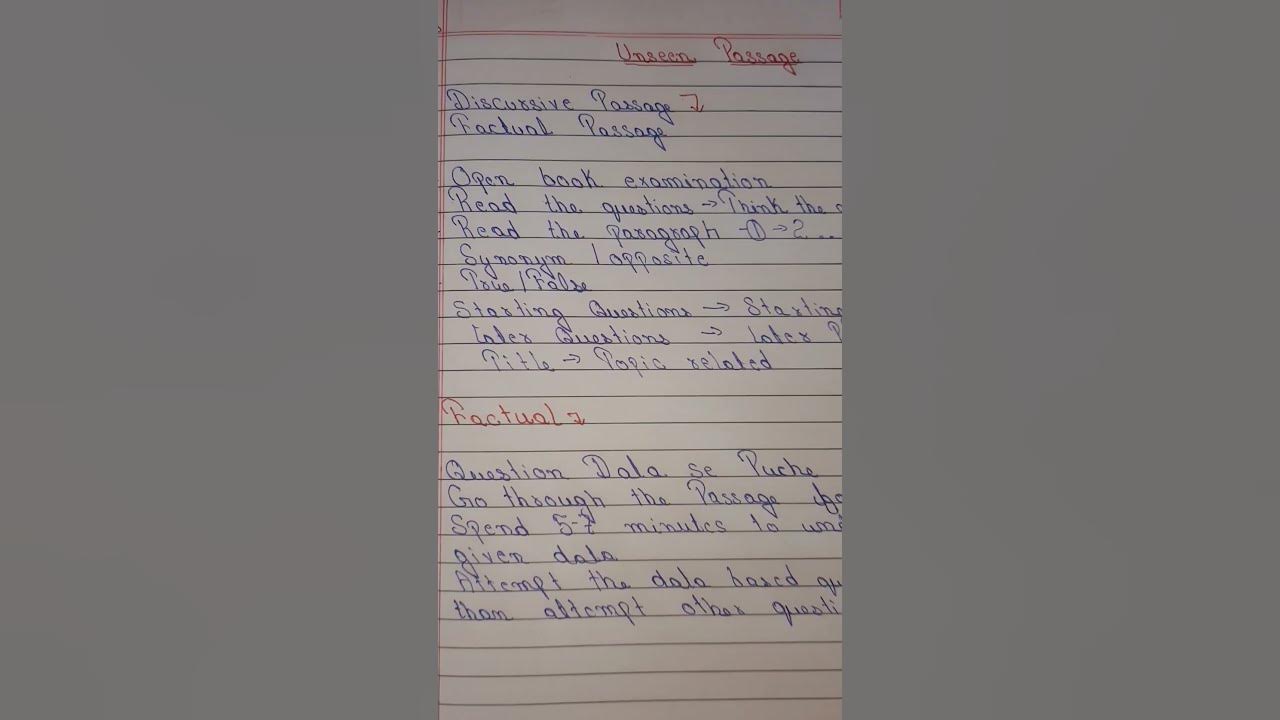 Unseen Passage
Discursive Passage
Factual Passage
Open book examination
Read the questions → Think the
Read the paragraph - ① → 2 ..
Synonym / opposite
True / False
Starting Questions → Starting
Later Questions → later P
Title → Topic related
Factual
Question Data se Puche
Go through the Passage
Spend 5-7 minutes to und
given data
Attempt the data based qu
than attempt other questi